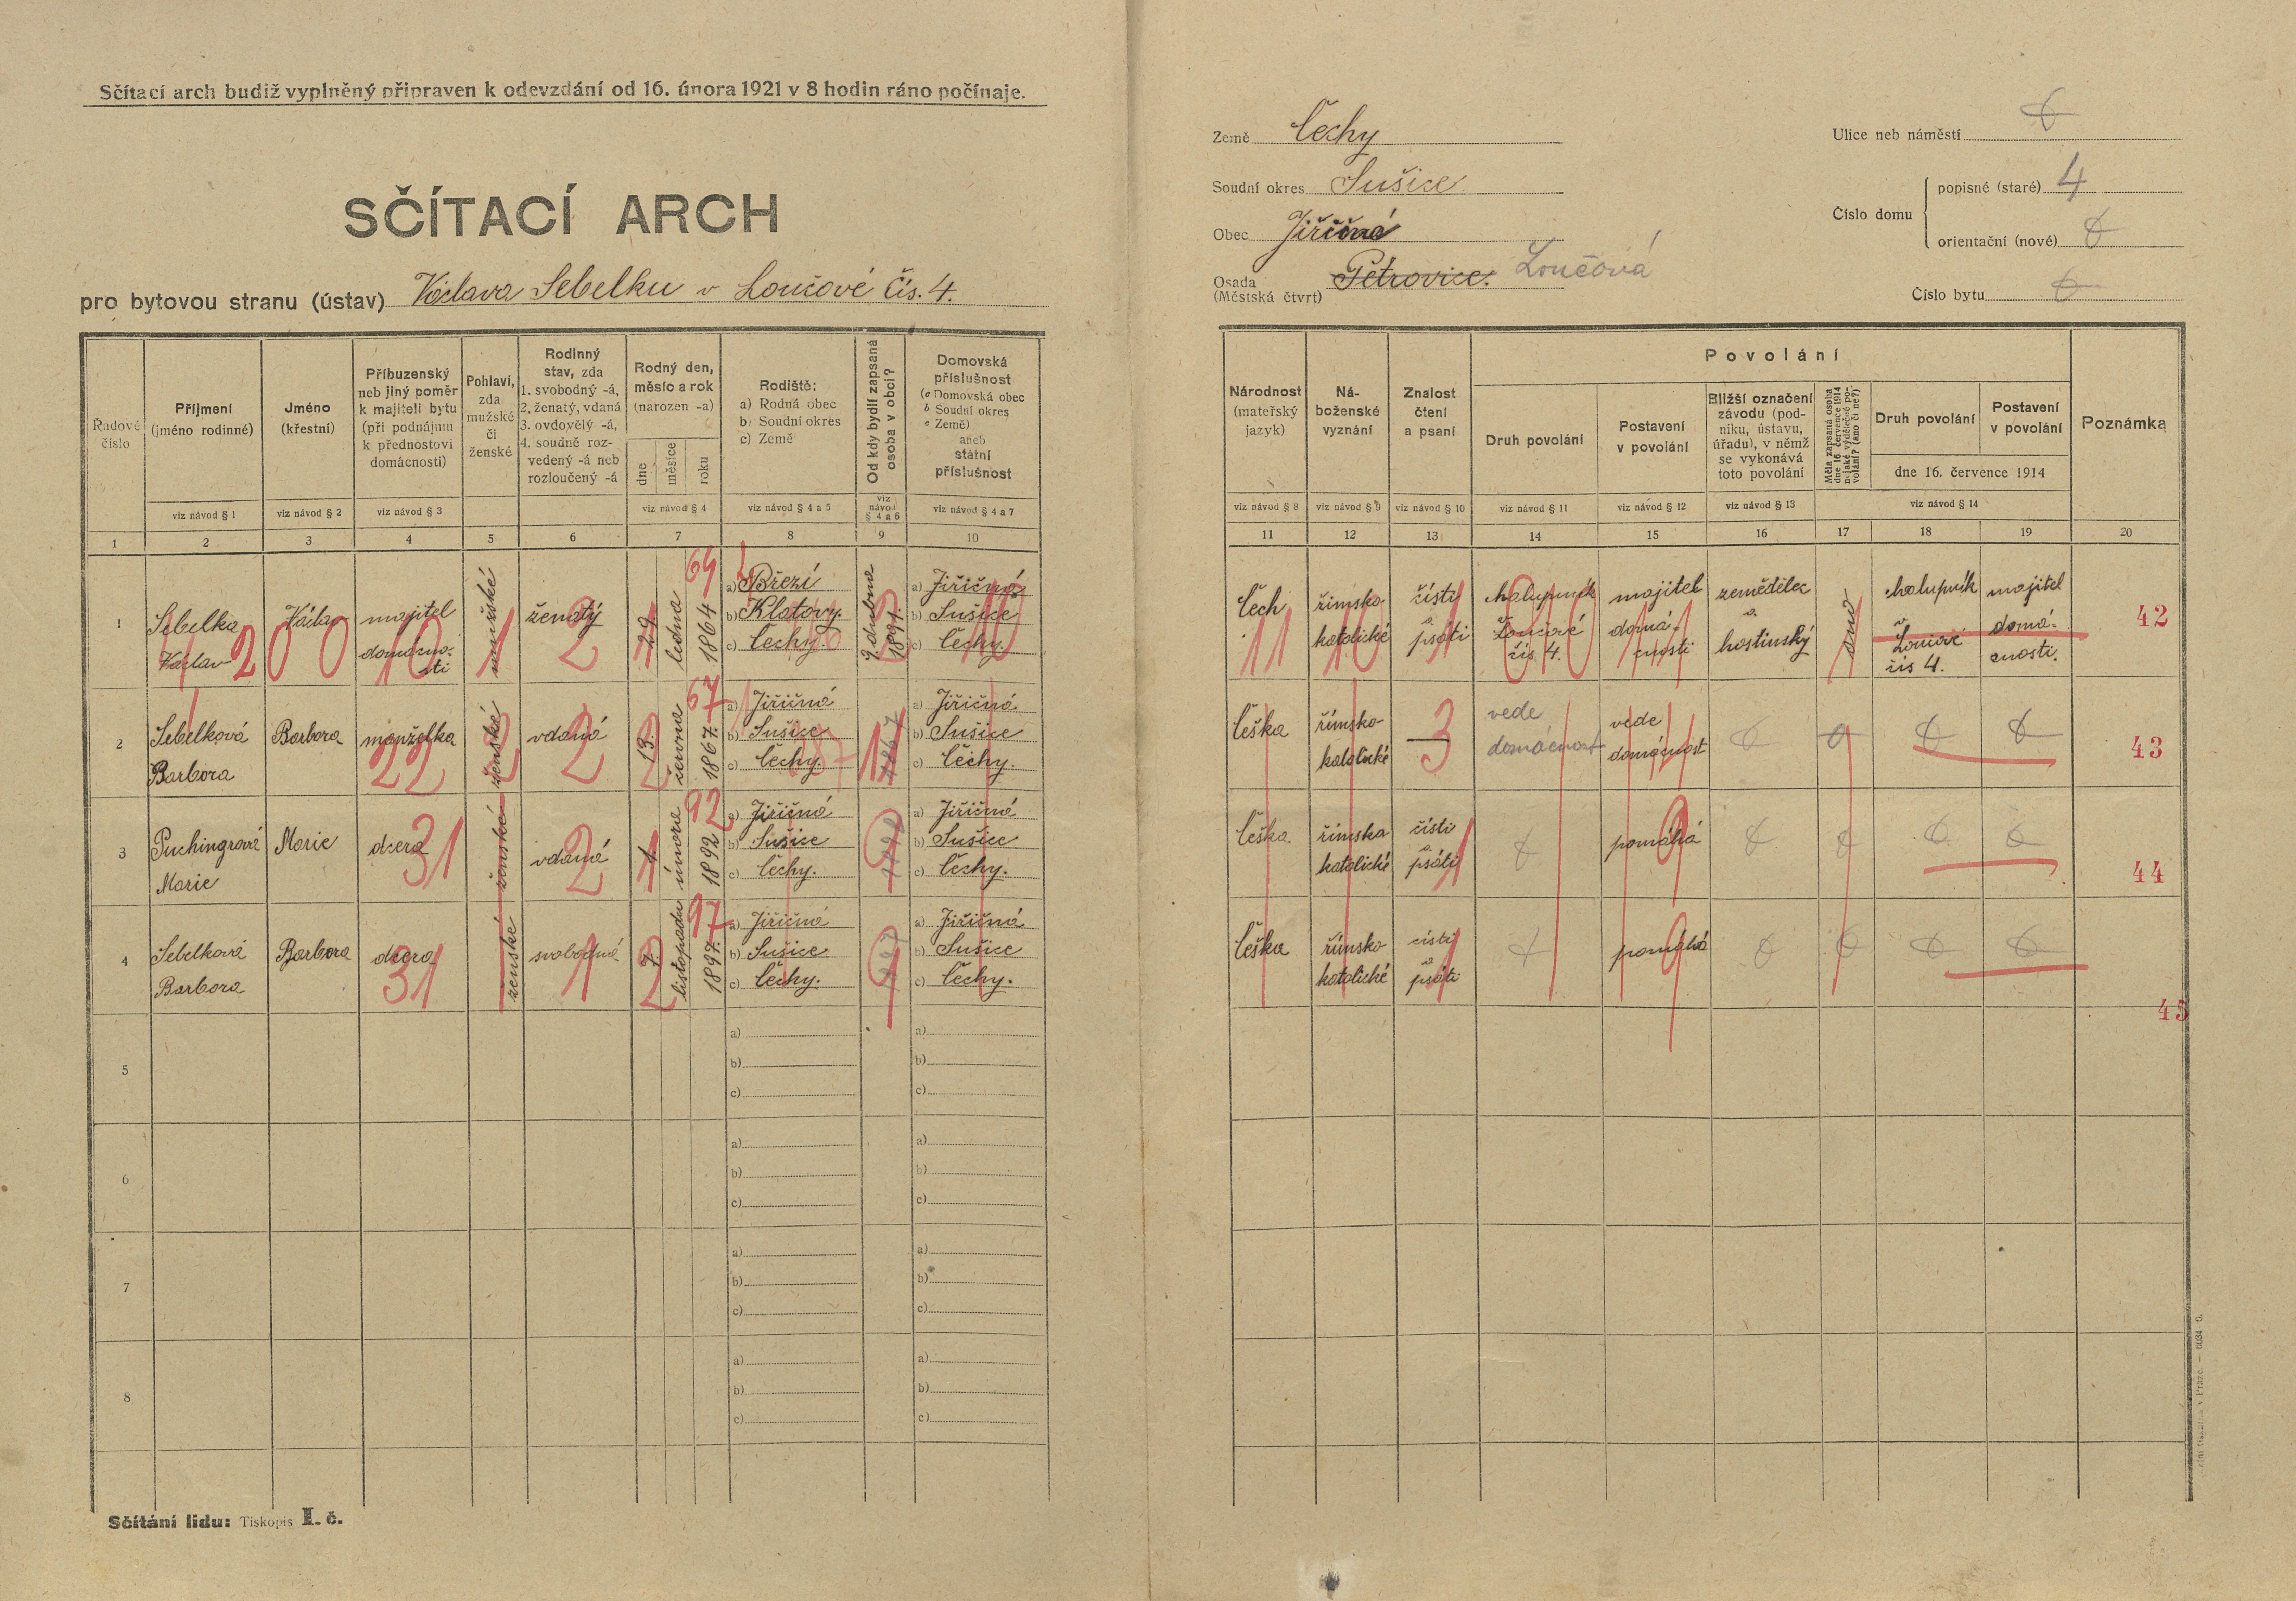 Sčítací arch budiž vyplněný připraven k odevzdání od 16. února 1921 v 8 hodin ráno počínaje.
SČÍTACÍ ARCH
pro bytovou stranu (ústav) Václava Sebelku v Loučové čís. 4.
Země Čechy
Soudní okres Sušice
Obec Jiřičná
Osada (Městská čtvrť) Petrovice. Loučová
Ulice neb náměstí
Číslo domu
popisné (staré) 4
orientační (nové)
Číslo bytu
Řadové číslo
Příjmení (jméno rodinné)
Jméno (křestní)
Příbuzenský neb jiný poměr k majiteli bytu (při podnájmu k přednostovi domácnosti)
Pohlaví, zda mužské či ženské
Rodinný stav, zda 1. svobodný -á, 2. ženatý, vdaná 3. ovdovělý -á, 4. soudně rozvedený -á neb rozloučený -á
Rodný den, měsíc a rok (narozen -a)
dne měsíce roku
Rodiště: a) Rodná obec b) Soudní okres c) Země
Od kdy bydlí zapsaná osoba v obci?
Domovská příslušnost (a Domovská obec b Soudní okres c Země) aneb státní příslušnost
viz návod § 1 viz návod § 2 viz návod § 3 viz návod § 4 viz návod § 4 a 5 viz návod § 4 a 6 viz návod § 4 a 7
1 2 3 4 5 6 7 8 9 10
Národnost (mateřský jazyk)
Náboženské vyznání
Znalost čtení a psaní
Povolání
Druh povolání
Postavení v povolání
Bližší označení závodu (podniku, ústavu, úřadu), v němž se vykonává toto povolání
Měla zapsaná osoba dne 16. července 1914 nějaké výdělečné povolání? (ano či ne?)
Druh povolání
Postavení v povolání
dne 16. července 1914
Poznámka
viz návod § 8 viz návod § 9 viz návod § 10 viz návod § 11 viz návod § 12 viz návod § 13 viz návod § 14
11 12 13 14 15 16 17 18 19 20
1 Sebelka Václav Václav majitel domácnosti mužské ženatý 29. ledna 1864 64
a) Březí b) Klatovy c) Čechy.
dubna 1891.
a) Jiřičná b) Sušice c) Čechy.
Čech římsko katolické čísti a psáti chalupník Loučové čís 4. majitel domácnosti zemědělec a hostinský ano chalupník v Loučové čís 4. majitel domácnosti. 42
2 Sebelková Barbora Barbora manželka ženské vdaná 13. června 1867 67
a) Jiřičná b) Sušice c) Čechy.
1867
a) Jiřičná b) Sušice c) Čechy.
Češka římsko-katolické — 3 vede domácnost vede domácnost 43
3 Puchingrová Marie Marie dcera ženské vdaná 1. února 1892 92
a) Jiřičná b) Sušice c) Čechy.
a) Jiřičná b) Sušice c) Čechy.
Češka. římska katolické čísti a psáti pomáhá 44
4 Sebelková Barbora Barbora dcera ženské svobodná 7. listopadu 1897. 97
a) Jiřičná b) Sušice c) Čechy.
a) Jiřičná b) Sušice c) Čechy.
Češka římsko katolické čísti a psáti pomáhá 45
5 a) b) c) a) b) c)
6 a) b) c) a) b) c)
7 a) b) c) a) b) c)
8 a) b) c) a) b) c)
Sčítání lidu: Tiskopis I. č.